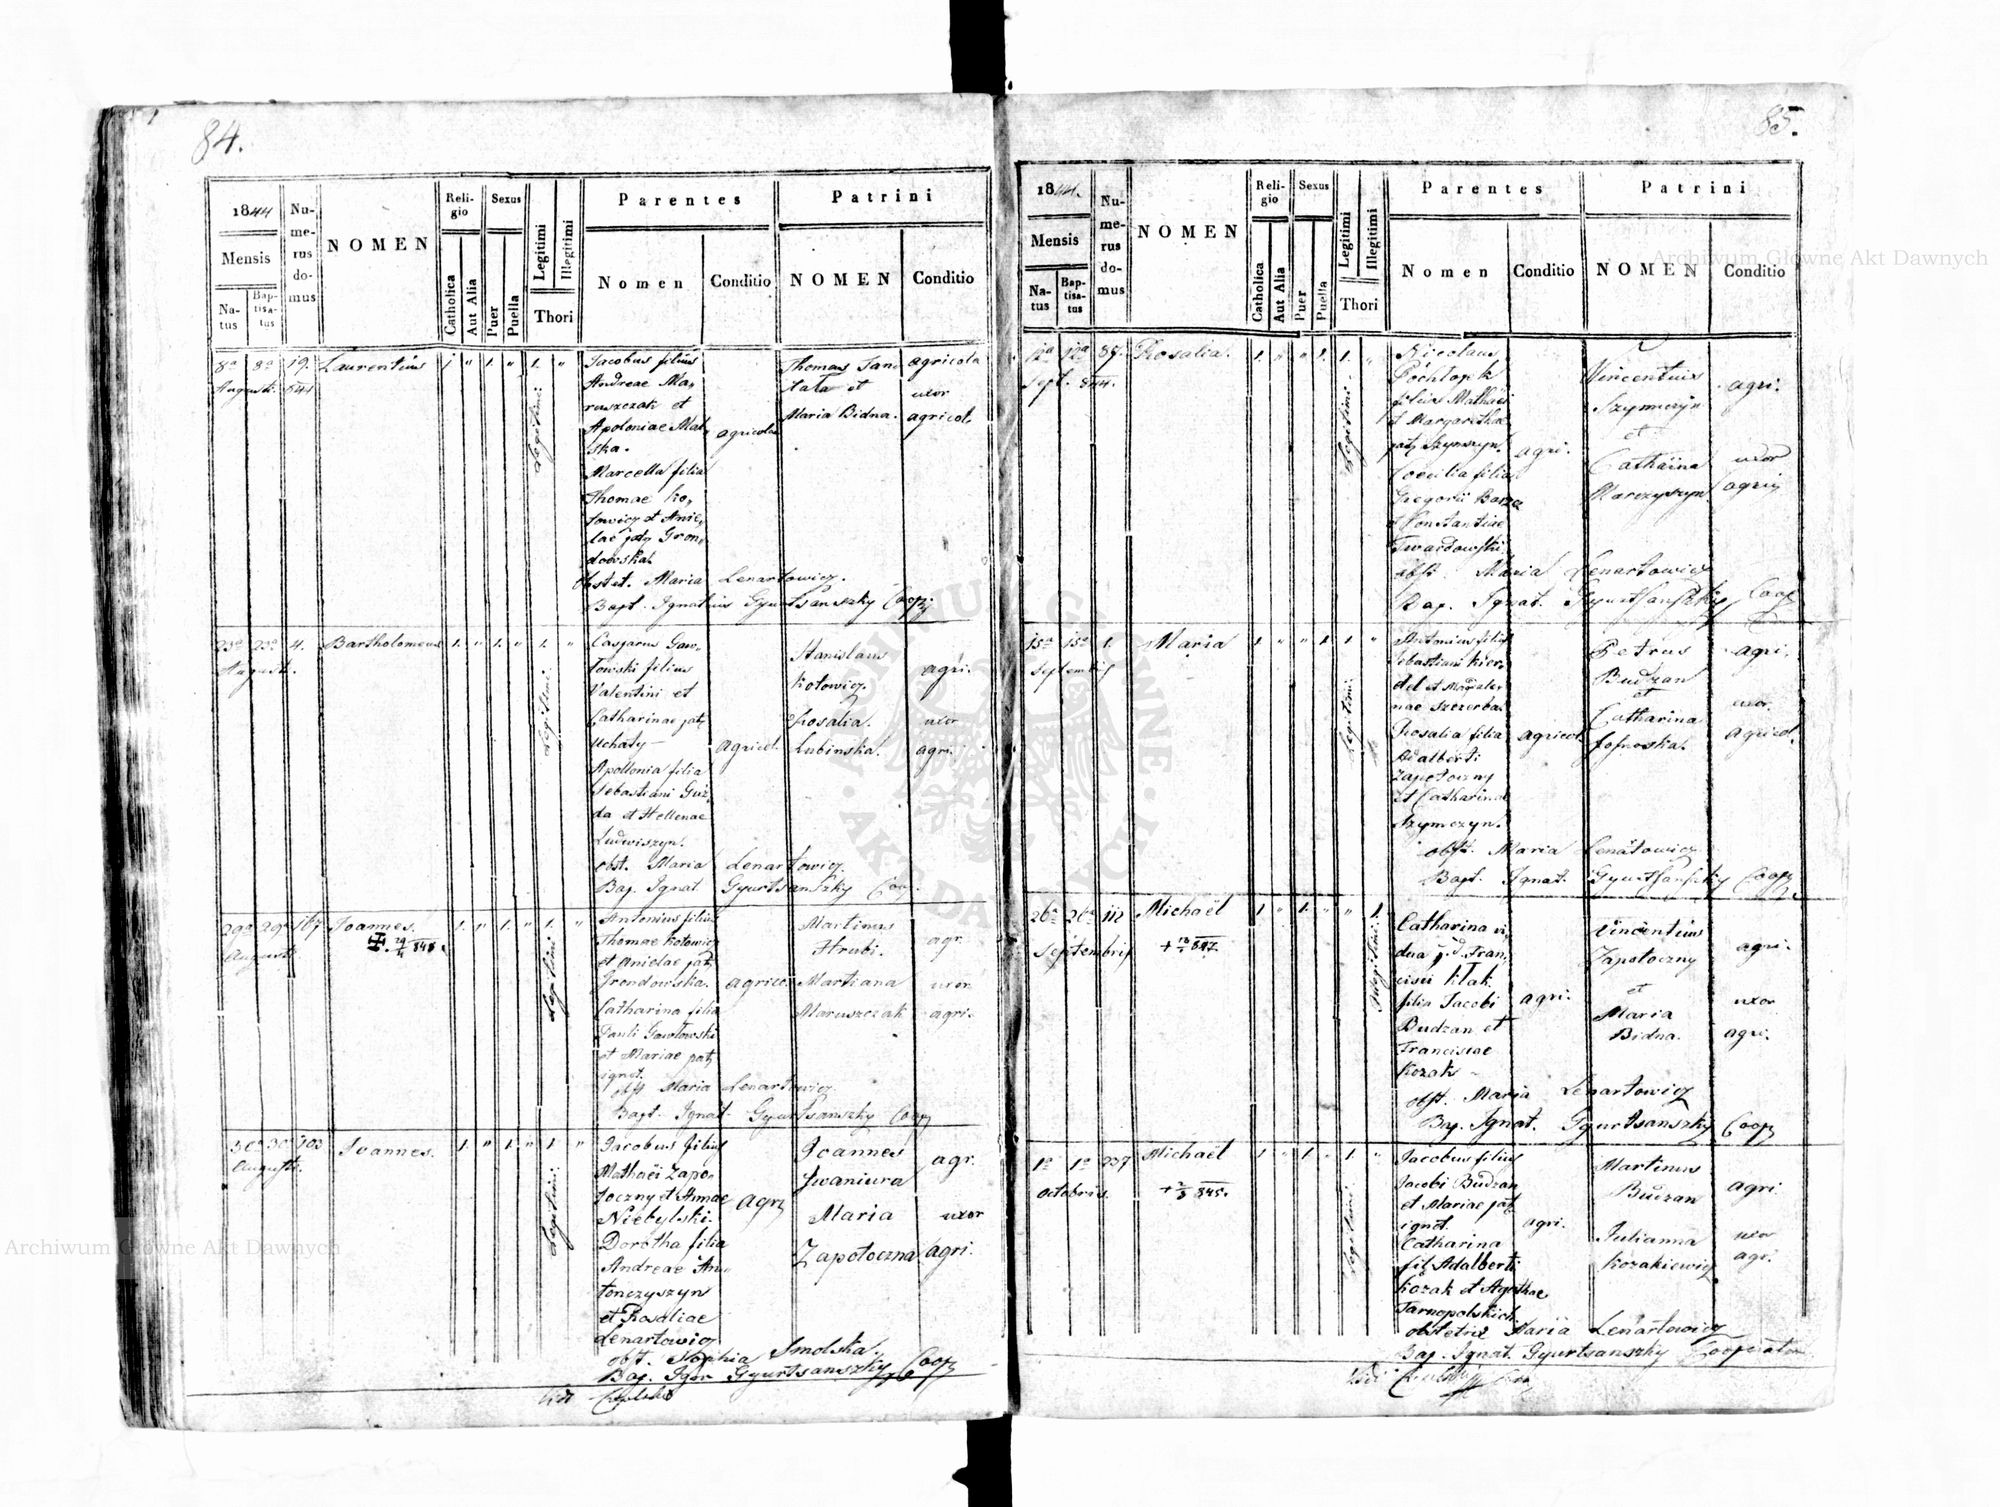 84.
1844
Mensis
Natus
Baptisatus
Numerus domus
NOMEN
Religio
Catholica
Aut Alia
Sexus
Puer
Puella
Legitimi
Illegitimi
Thori
Parentes
Nomen
Conditio
Patrini
NOMEN
Conditio
8a 8a 19. Laurentius 1 " 1. " 1. "
Augusti. 844
Legitimi.
Jacobus filius
Andreae Ma-
ruszczak et
Apoloniae
ska.
Marcella filia
Thomae Ko-
towicz et Anie-
lae patz Gron-
dowska.
agricola
Thomas
et
Maria Bidna.
agricola
uxor
agricol.
Obstet. Maria Lenartowicz.
Bapt. Ignatius Gyurtsanszky Coop
23a 23a 4. Bartholomeus 1. " 1. " 1. "
August.
Legitimi.
Casparus Gaw-
łowski filius
Valentini et
Catharinae patz
Uchaty
Apollonia filia
Sebastiani Guz-
da et Hellenae
Ludwiszyn.
agricol.
Stanislaus
Kotowicz.
Rosalia.
Lubinska.
agri.
uxor
agri.
obst. Maria Lenartowicz
Bap. Ignat Gyurtsanszky Coop.
29a 29a 167 Joannes. 1. " 1. " 1. "
Augusti
29/4 848.
Legitimi
Antonius filius
Thomae Kotowicz
et Anielae patz
Grondowska.
Catharina filia
Pauli Gawłowski
et Mariae patz
ignot.
agrico.
Martinus
Hrubi.
Martiana
Maruszczak
agr.
uxor
agri.
obst Maria Lenartowicz.
Bapt. Ignat. Gyurtsanszky Coop
30a 30a 103 Joannes. 1. " 1. " 1. "
Augusti.
Legitimi.
Jacobus filius
Mathaei Zapo-
toczny et Annae
Niebylski.
Dorotha filia
Andreae An-
tonczyszyn
et Rosaliae
Lenartowicz
agri
Joannes
Iwaniura
Maria
Zapotoczna
agr.
uxor
agri.
obst. Sophia Smolska.
Bap. Ign Gyurtsanszky Coop
Vidi
85.
1844.
Mensis
Natus
Baptisatus
Numerus domus
NOMEN
Religio
Catholica
Aut Alia
Sexus
Puer
Puella
Legitimi
Illegitimi
Thori
Parentes
Nomen
Conditio
Patrini
NOMEN
Conditio
12a 12a 87. Rosalia. 1. " " 1. 1. "
Sept. 844.
Legitimi.
Nicolaus
filius Mathaei
et Margaretha
Coecilia filia
Gregorii
et Constantiae
Twardowski
agri.
Vincentius
Szymczyn
et
Catharina
Marczyszyn
agri.
uxor
agri
obst. Maria Lenartowicz
Bap. Ignat. Gyurtsanszky Coop
15a 15a 1. Maria 1. " " 1. 1. "
Septembris
Legitimi.
Antonius filius
Sebastiani Kier-
del et Magdale-
nae Szczerba.
Rosalia filia
Adalberti
Zapotoczny
et Catharinae
Szymczyn.
agricol.
Petrus
Budzan
et
Catharina
agri.
uxor.
agricol.
obst. Maria Lenartowicz
Bapt. Ignat. Gyurtsanszky Coop
26a 26a 112 Michaël 1. " 1. " " 1.
Septembris
847.
Illegitimi.
Catharina vi-
dua p. d. Fran-
cisci Kłak
filia Jacobi
Budzan et
Franciscae
Kozak
agri.
Vincentius
Zapotoczny
et
Maria
Bidna.
agri.
uxor
agri.
obst. Maria Lenartowicz
Bap. Ignat. Gyurtsanszky Coop
1a 1a 237 Michaël 1. " 1. " 1. "
octobris.
845.
Legitimi.
Jacobus filius
Jacobi Budzan
et Mariae patz
ignot.
Catharina
fil Adalberti
Kozak et Agathae
Tarnopolskich
agri.
Martinus
Budzan
Julianna
Kozakiewicz
agri.
uxor
agri.
obstetrix Maria Lenartowicz
Bap. Ignat. Gyurtsanszky Cooperator
Vidi
Archiwum Główne Akt Dawnych
Archiwum Główne Akt Dawnych
ARCHIWUM GŁÓWNE
AKT DAWNYCH